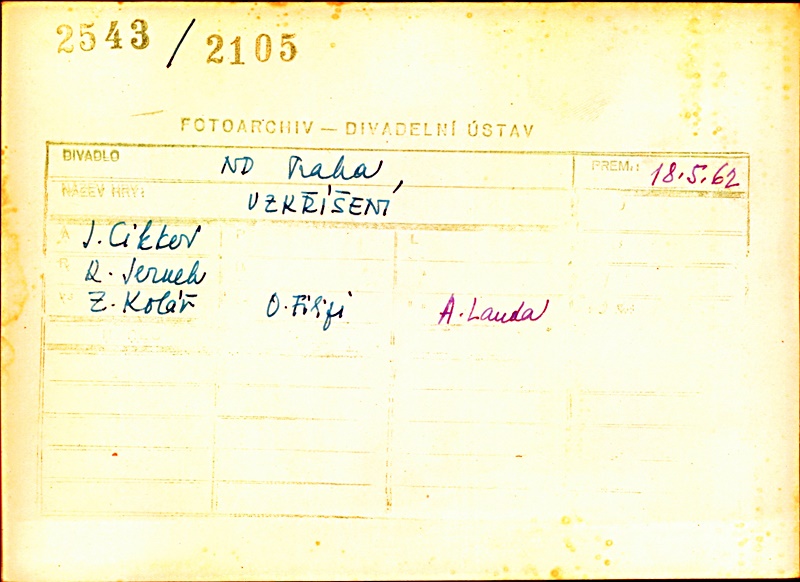 2543 / 2105
FOTOARCHIV — DIVADELNÍ ÚSTAV
DIVADLO ND Praha, PREM.: 18.5.62
NÁZEV HRY: VZKŘÍŠENÍ
A J. Cikker
R R. Jernek
V Z. Kolář O. Filipi A. Landa